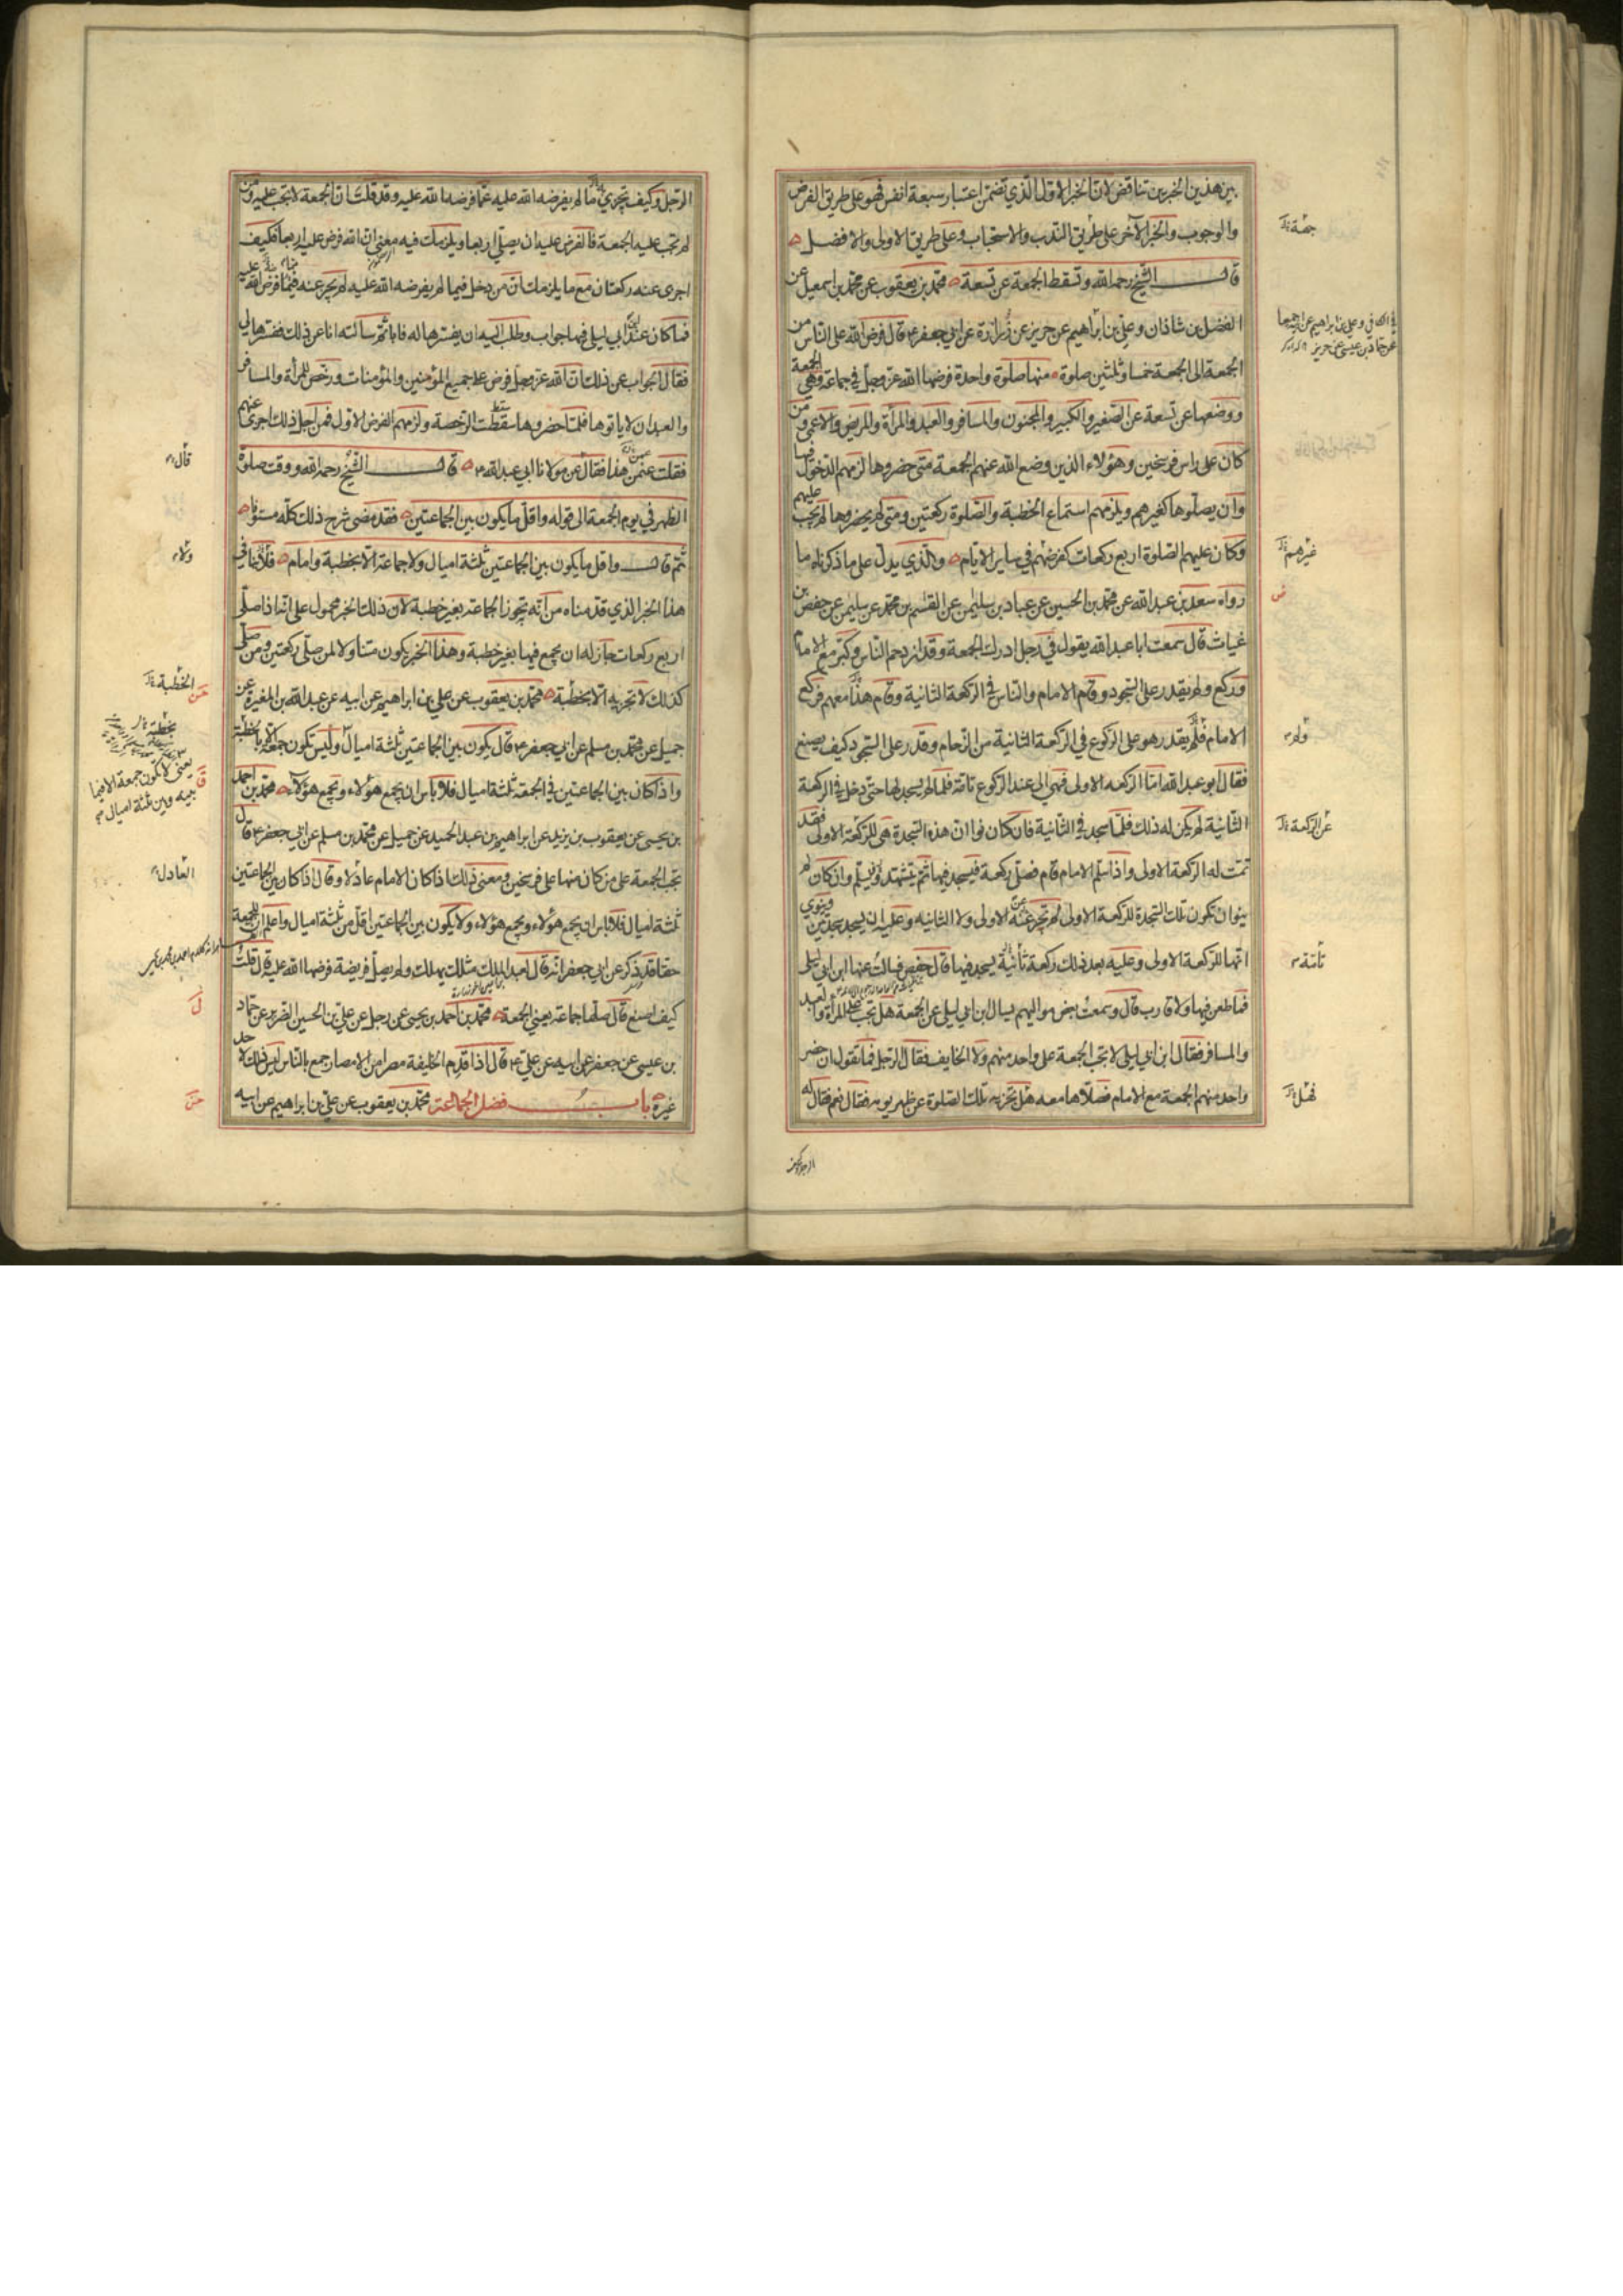 بين هذين الخبرين تناقض لان الخبر الاول الذي تضمن اعتبار سبعة انفس فهو على طريق الفرض
والوجوب والخبر الآخر على طريق الندب والاستحباب وعلى طريق الاولى والافضل
قال الشيخ رحمه الله وتسقط الجمعة عن تسعة محمد بن يعقوب عن محمد بن اسمعيل عن
الفضل بن شاذان وعلي بن ابراهيم عن حريز عن زرارة عن ابي جعفر ع قال فرض الله على الناس من
الجمعة الى الجمعة خمسا وثلثين صلوة منها صلوة واحدة فرضها الله عز وجل في جماعة وهي الجمعة
ووضعها عن تسعة عن الصغير والكبير والمجنون والمسافر والعبد والمرأة والمريض والاعمى ومن
كان على راس فرسخين وهؤلاء الذين وضع الله عنهم الجمعة متى حضروها لزمهم الدخول فيها
وان يصلوها كغيرهم ويلزمهم استماع الخطبة والصلوة ركعتين ومتى لم يحضروها لم تجب عليهم
وكان عليهم الصلوة اربع ركعات كفرضهم في ساير الايام والذي يدل على ما ذكرناه ما
رواه سعد بن عبدالله عن محمد بن الحسين عن عباد بن سليمن عن القسم بن محمد عن سليمن عن حفص بن
غياث قال سمعت ابا عبدالله يقول في رجل ادرك الجمعة وقد ازدحم الناس وكبر مع الامام
وركع ولم يقدر على السجود وقام الامام والناس في الركعة الثانية وقام هذا معهم فركع
الامام فلم يقدر هو على الركوع في الركعة الثانية من الزحام وقدر على السجود كيف يصنع
فقال ابو عبدالله اما الركعة الاولى فهي الى عند الركوع تامة فلما لم يسجد لها حتى دخل في الركعة
الثانية لم يكن له ذلك فلما سجد في الثانية فان كان نوا ان هذه السجدة هي للركعة الاولى فقد
تمت له الركعة الاولى واذا سلم الامام قام فصلى ركعة فيسجد فيها ثم يتشهد ويسلم وان كان لم
ينو ان تكون تلك السجدة للركعة الاولى لم تجز عنه الاولى ولا الثانيه وعليه ان يسجد سجدتين وينوي
انهما للركعة الاولى وعليه بعد ذلك ركعة ثانية يسجد فيها قال حفص فسالت عنها ابن ابي ليلى
فما طعن فيها ولا قارب قال وسمعت بعض مواليهم يسال ابن ابي ليلى عن الجمعة هل تجب على المرأة والعبد
والمسافر فقال ابن ابي ليلى لا تجب الجمعة على واحد منهم ولا الخايف فقال الرجل فما تقول ان حضر
واحد منهم الجمعة مع الامام فصلاها معه هل تجزيه تلك الصلوة عن ظهر يومه فقال نعم فقال له
الرجل وكيف
في الكافي وعلي بن ابراهيم عن ابيه جميعا
عن حماد بن عيسى عن حريز
غيرهم
ولم
عن الركعة
تامة
فهل
الرجل وكيف تجزي ما لم يفرضه الله عليه عما فرضه الله عليه وقد قلت ان الجمعة لا تجب عليه ومن
لم تجب عليه الجمعة فالفرض عليه ان يصلي اربعا ويلزمك فيه معنى ان الله فرض عليه اربعا فكيف
اجزى عنه ركعتان مع ما يلزمك ان من دخل فيما لم يفرضه الله عليه لم يجز عنه فيما فرض الله عليه
فما كان عند ابي ليلى فيها جواب وطلب اليه ان يفسرها له فابى ثم سالته انا عن ذلك ففسرها لي
فقال الجواب عن ذلك ان الله عز وجل فرض على جميع المؤمنين والمؤمنات ورخص للمرأة والمسافر
والعبد ان لا ياتوها فلما حضروها سقطت الرخصة ولزمهم الفرض الاول فمن اجل ذلك اجزى عنهم
فقلت عمن هذا فقال عن مولانا ابي عبدالله ع قال الشيخ رحمه الله ووقت صلوة
الظهر في يوم الجمعة الى قوله واقل ما يكون بين الجماعتين فقد مضى شرح ذلك كله مستوفا
ثم قال واقل ما يكون بين الجماعتين ثلثة اميال ولا جماعة الا بخطبة وامام
هذا الخبر الذي قدمناه من انه تجوز الجماعة بغير خطبة لان ذلك الخبر محمول على انه اذا صلى
اربع ركعات جاز له ان يجمع فيها بغير خطبة وهذا الخبر يكون متناولا لمن صلى ركعتين ومن صلى
كذلك لا تجزيه الا بخطبة محمد بن يعقوب عن علي بن ابراهيم عن ابيه عن عبدالله بن المغيرة عن
جميل عن محمد بن مسلم عن ابي جعفر ع قال يكون بين الجماعتين ثلثة اميال وليس تكون جمعة الا بخطبة
واذا كان بين الجماعتين في الجمعة ثلثة اميال فلا باس ان يجمع هؤلاء ويجمع هؤلاء محمد بن احمد
بن يحيى عن يعقوب بن يزيد عن ابراهيم بن عبد الحميد عن جميل عن محمد بن مسلم عن ابي جعفر ع قال
تجب الجمعة على من كان منها على فرسخين ومعنى ذلك اذا كان الامام عادلا وقال اذا كان بين الجماعتين
ثلثة اميال فلا باس ان يجمع هؤلاء ويجمع هؤلاء ولا يكون بين الجماعتين اقل من ثلثة اميال واعلم ان للجمعة
حقا قد ذكر عن ابي جعفر انه قال لعبد الملك مثلك يهلك ولم يصل فريضة فرضها الله عليه قال قلت
كيف اصنع قال صلها جماعة يعني الجمعة محمد بن احمد بن يحيى عن رجل عن علي بن الحسين الضرير عن حماد
بن عيسى عن جعفر عن ابيه عن علي ع قال اذا قدم الخليفة مصرا من الامصار جمع بالناس ليس ذلك لاحد
غيره باب فضل الجماعة محمد بن يعقوب عن علي بن ابراهيم عن ابيه
قال
ولا
الخطبة
يعني لا يكون جمعة الا فيما
بينه وبين ثلثة اميال
العادل